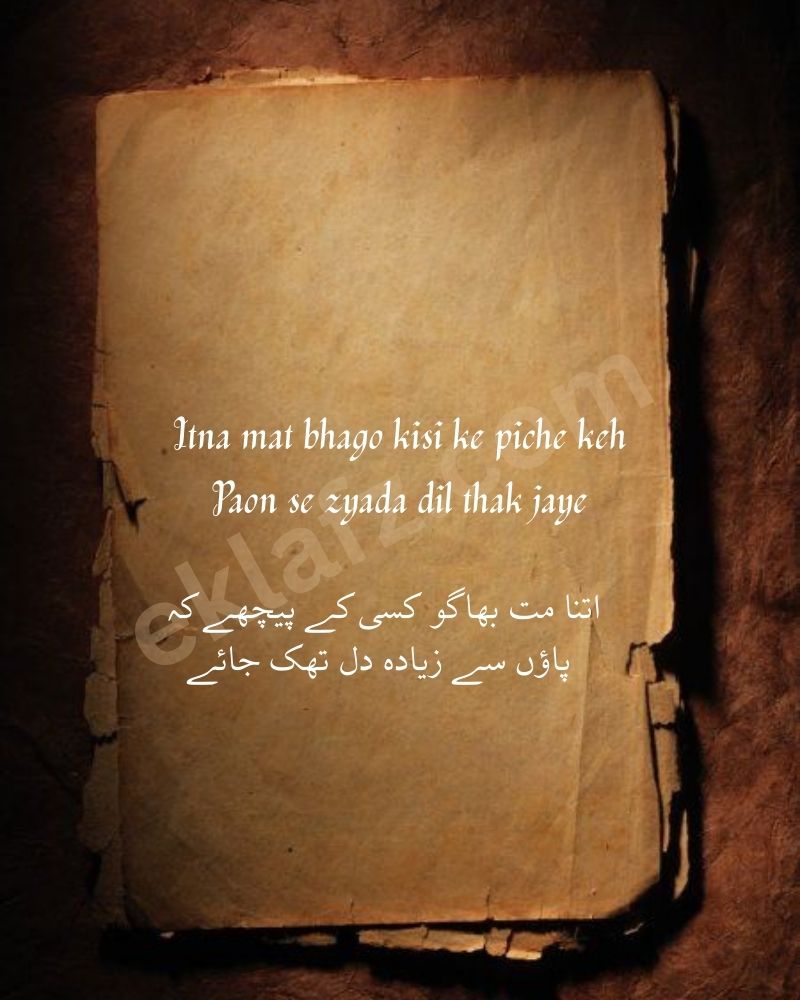 Itna mat bhago kisi ke piche keh
Paon se zyada dil thak jaye
اتنا مت بھاگو کسی کے پیچھے کہ
پاؤں سے زیادہ دل تھک جائے
eklafz.com